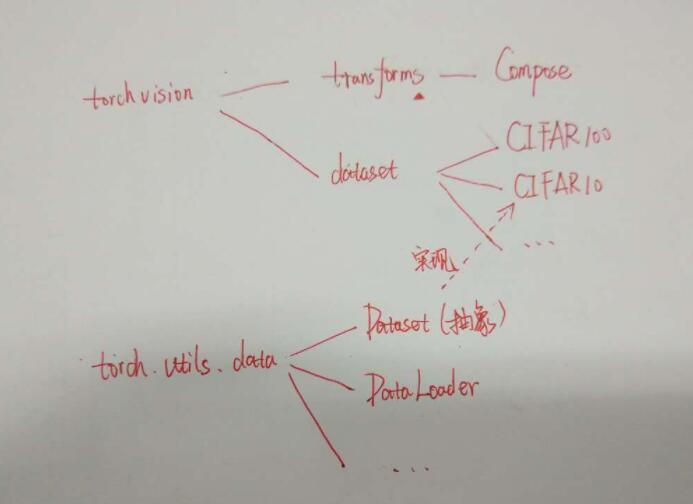 torchvision
transforms
Compose
dataset
CIFAR100
CIFAR10
...
实现
torch.utils.data
Dataset (抽象)
DataLoader
...